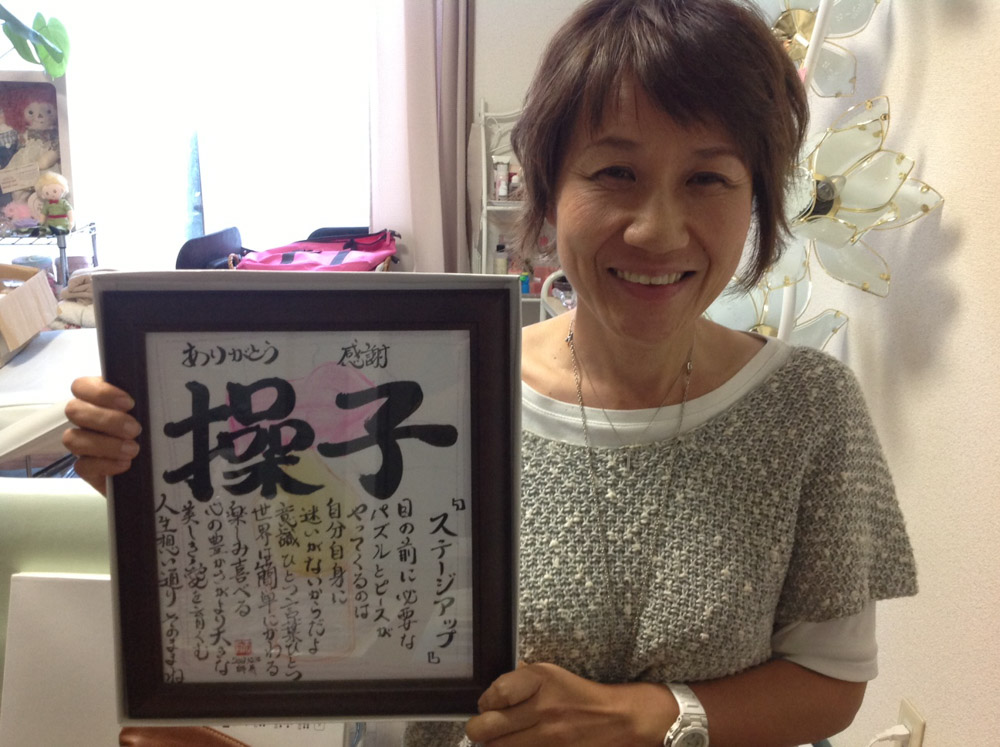 ありがとう 感謝
操子
『ステージアップ』
目の前に必要な
パズルとピースが
やってくるのは
自分自身に
迷いがないからだよ
意識ひとつ言葉ひとつ
世界は簡単にかわる
楽しみ喜べる
心の豊かさがより大きな
美しき愛を育くむ
人生想い通りそのままね